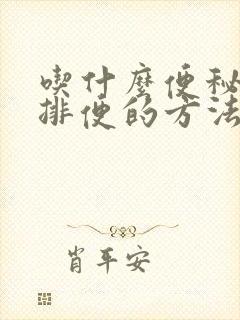 喫什麼便秘
排便的方法
肖平安